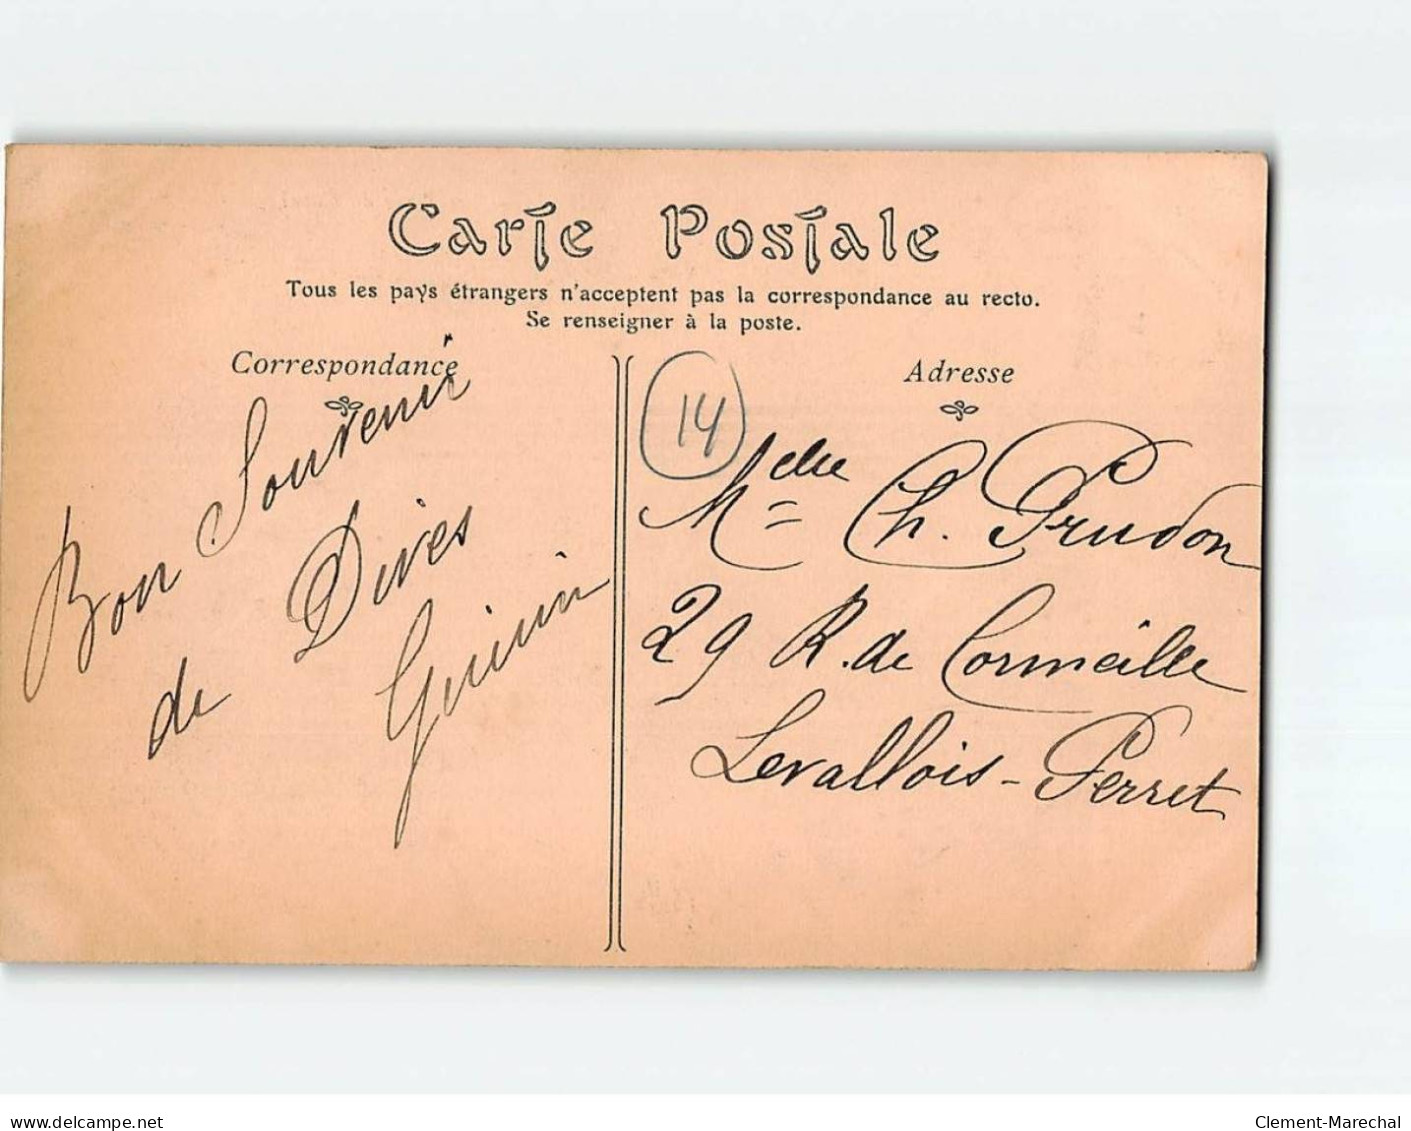 Carte Postale
Tous les pays étrangers n'acceptent pas la correspondance au recto.
Se renseigner à la poste.
Correspondance
Adresse
14
Bon Souvenir
de Dives
Mdlle Ch. Prudon
29 R. de Cormeille
Levallois-Perret
delcampe.net
Clement-Marechal